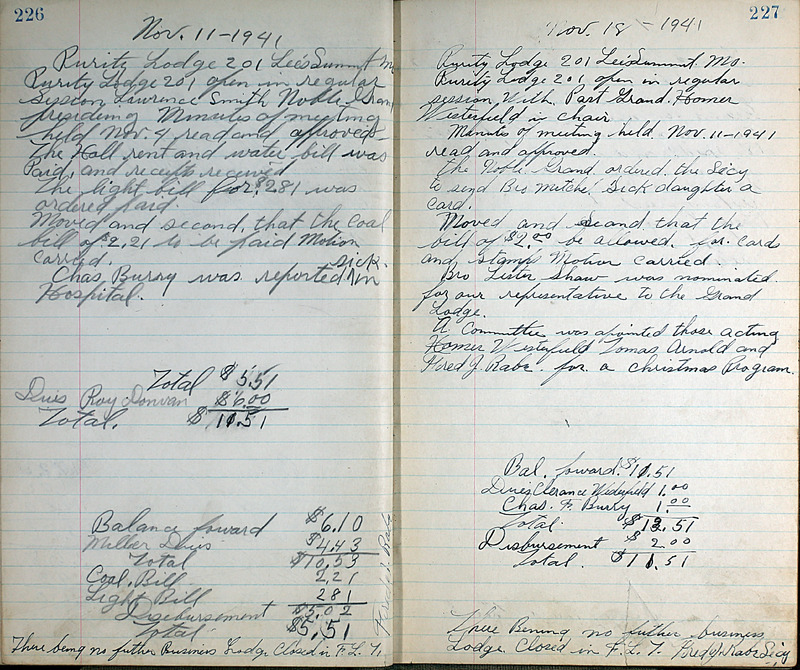 226
Nov. 11-1941
Purity Lodge 201 Lee'sSummit Mo
Purity Lodge 201 open in regular
session Laurence Smith Noble Gran
presiding Minutes of meeting
held Nov. 4 read and approved
The Hall rent and water bill was
Paid, and receipts received
The light bill for $2.81 was
ordered paid.
Moved and second, that the coal
bill of $2.21 to be paid Motion
carried.
Chas. Burry was reported sick in
Hospital.
Total $5.51
Dues Roy Donvan $6.00
Total. $11.51
Balance foward $6.10
Dues $4.43
Total $10.53
Coal. Bill 2 21
Light Bill 2 81
Disbursement $5.02
Total $5.51
There being no futher Business Lodge Closed in F.L.T.
227
Nov. 18-1941
Purity Lodge 201 Lee'sSummit. Mo.
Purity Lodge 201, open in regular
session, With. Past Grand. Homer
Westerfield in chair.
Minutes of meeting held. Nov. 11-1941
read and approved.
the Noble Grand ordered. the Secy
to send Bro Mitchel Sick daughter a
card.
Moved and second that the
bill of $2.00 be allowed for Cards
and stamps Motion carried.
Bro Lester Shaw was nominated.
for our representative to the Grand
Lodge.
A. Committee was apointed those acting
Homer Westerfield Tomas Arnold and
Fred J. Rabe. for a christmas Program.
Bal. foward. $11.51
Dues Clerance Widerfield 1.00
Chas. F. Burry 1.00
Total. $13.51
Disbursement $2.00
Total. $11.51
There Bening no futher business
Lodge Closed in F.L.T. Fred J Rabe Secy